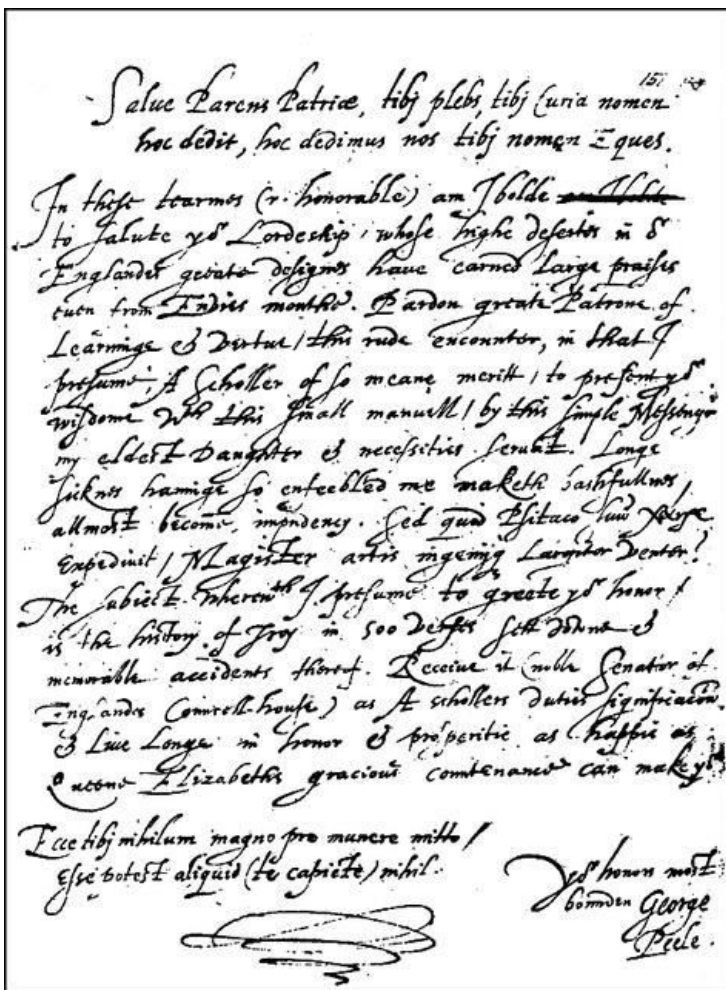 151
Salue Parens Patriæ, tibj plebs, tibj Curia nomen
hoc dedit, hoc dedimus nos tibj nomen Eques.
In these tearmes (r. honorable) am I bolde
to salute yor Lordeship, whose highe desertes in or
Englandes greate designes have earned large praises
euen from Enuies mouthe. Pardon greate Patrone of
Learninge & Vertue, this rude encounter, in that I
presume, A Scholler of so meane meritt, to present yor
wisdome Wth this small manuell, by this simple Messenger
my eldest Daughter & necessities seruāt. Longe
sicknes hauinge so enfeebled me maketh bashfullnes
allmost become, impudency. Sed quis Psitaco suum χαῖρε
Expediuit, Magister artis ingenijq Largitor Venter?
The subiect wherewth I presume to greete yor honor
is the history of Troy in 500 verses sett downe &
memorable accidents thereof. Receive it (noble Senator of
Englandes Counsell-house) as A schollers duties significacōn
& Live Longe in honor & prosperitie as happie as
Queene Elizabeths gracious countenance can make yor
Ecce tibj nihilum magno pro munere mitto,
Esse potest aliquid (te capiēte) nihil.
yor honors most
bounden George
Peele.